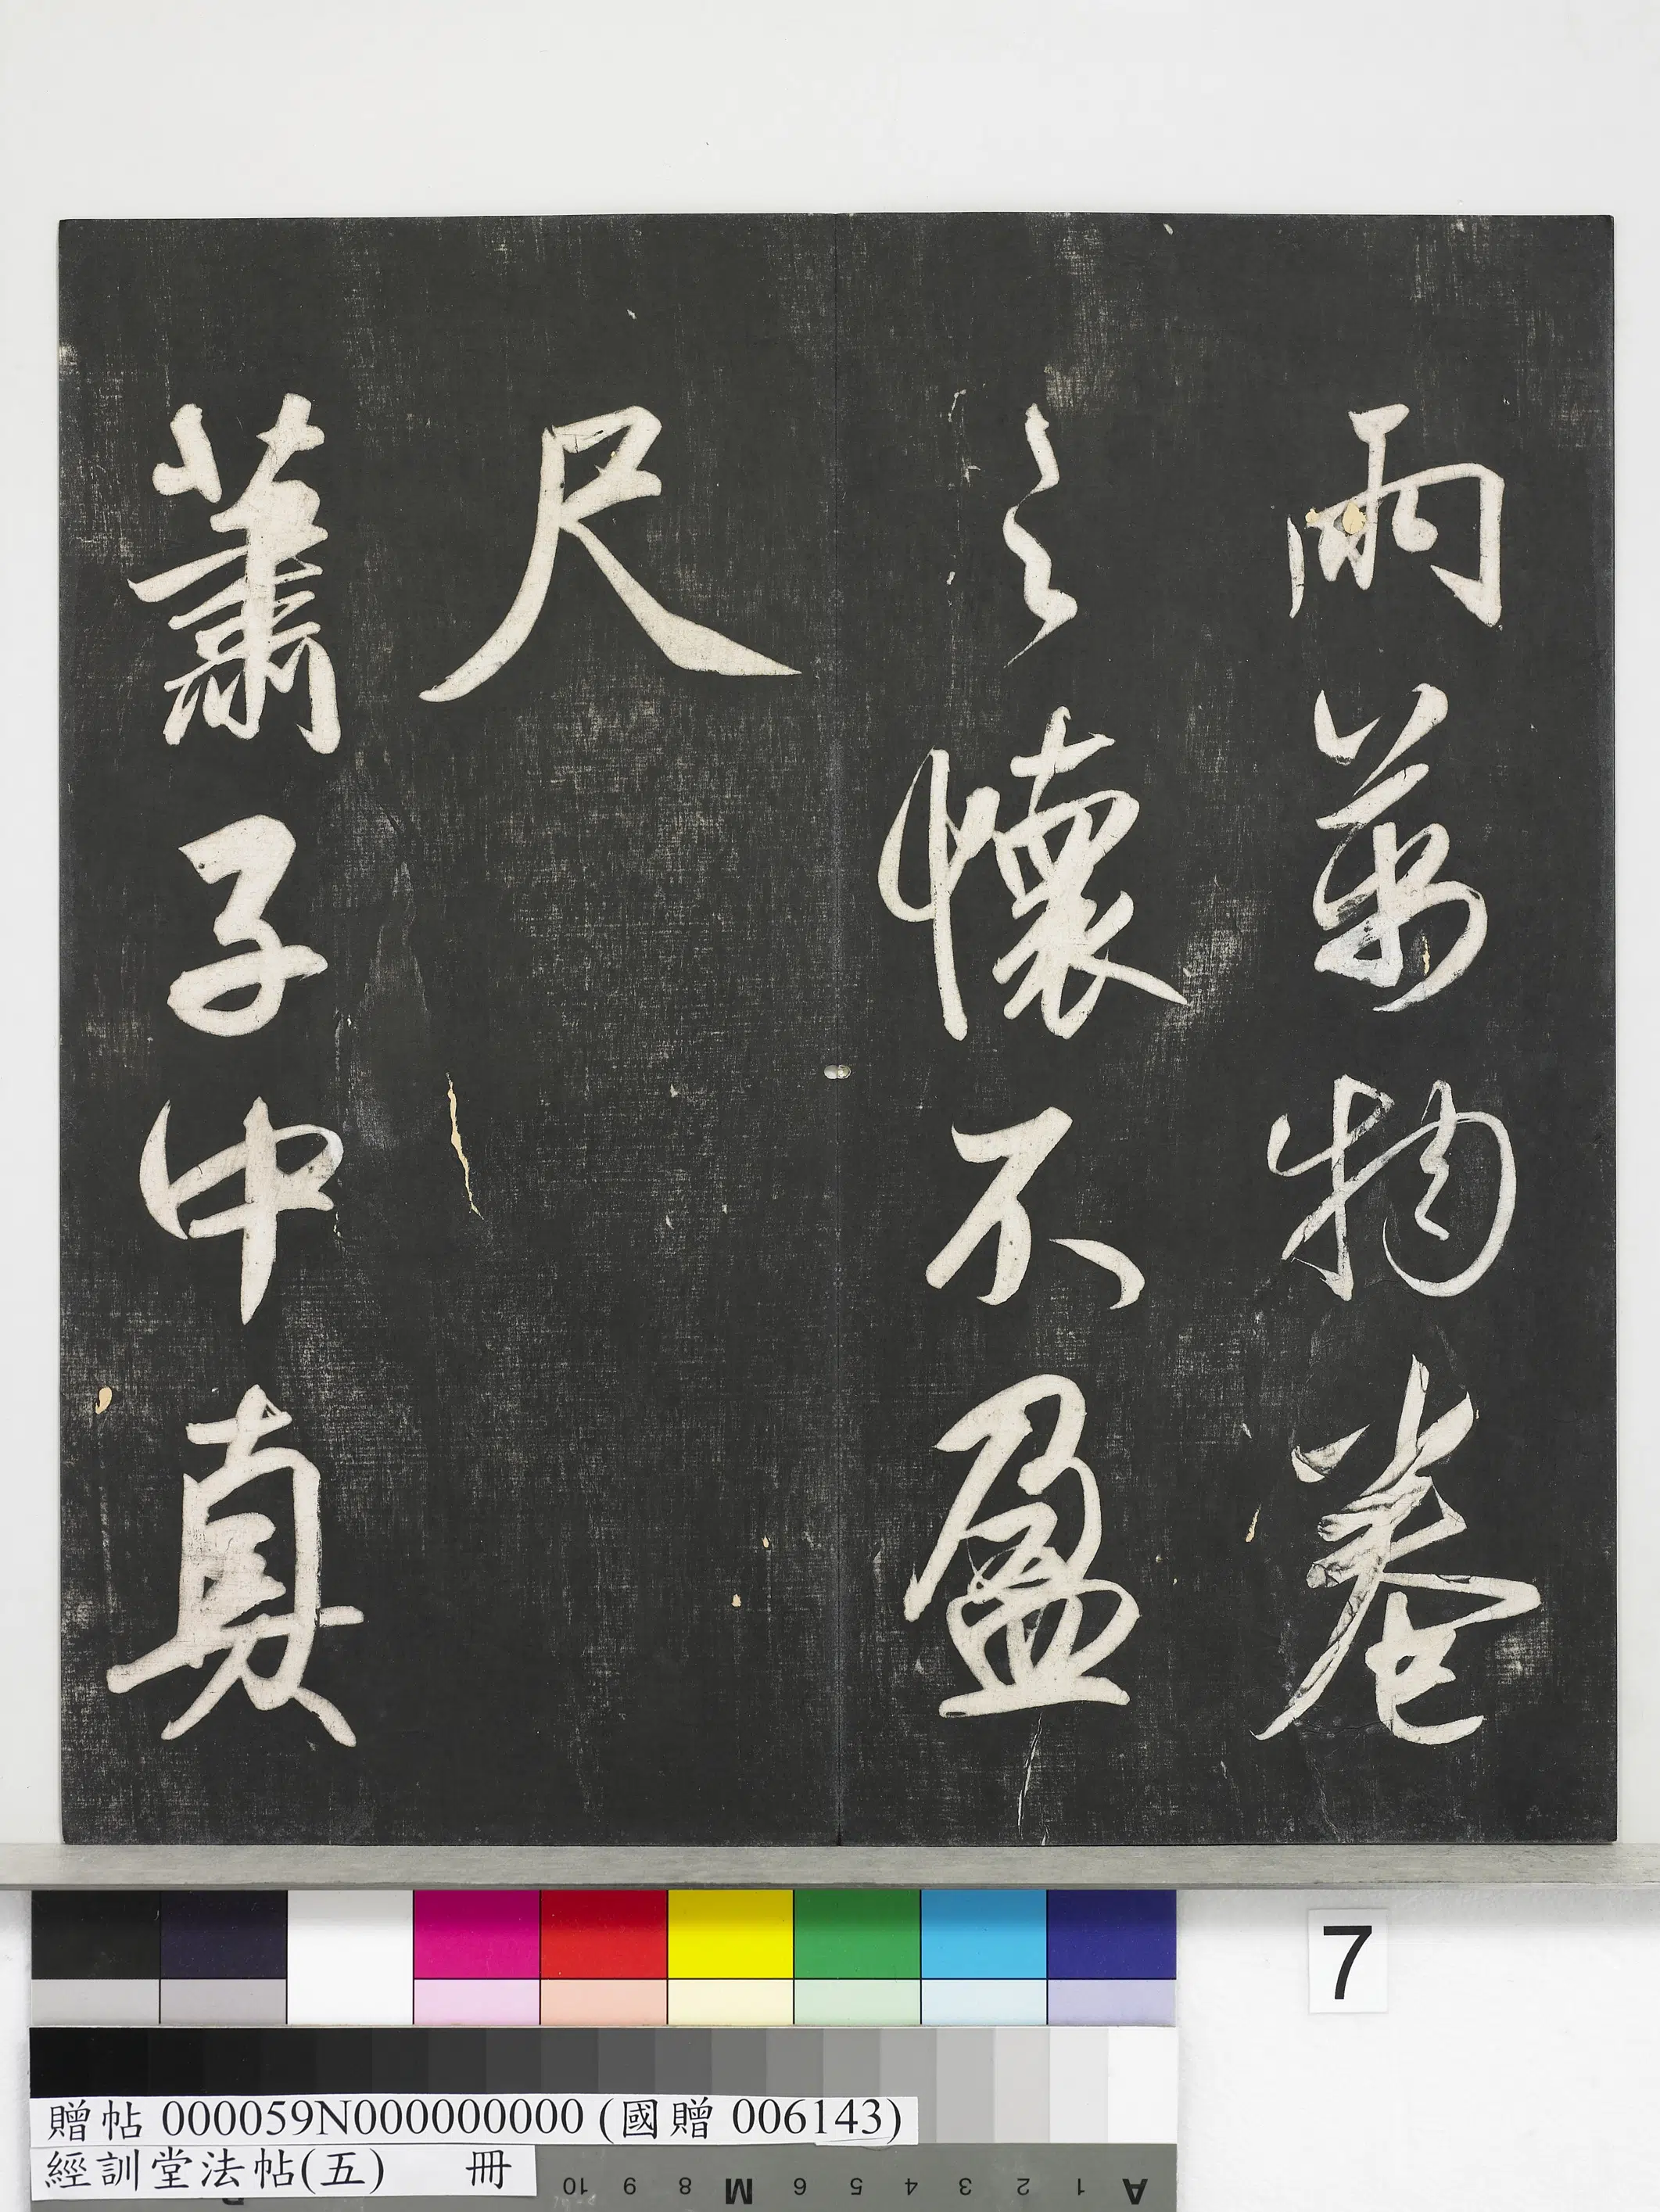 雨萬物卷
之懷不盈
尺
蕭子中真
7
贈帖 000059N000000000 (國贈 006143)
經訓堂法帖(五) 冊
10 9 8 M 6 5 4 3 2 1 A